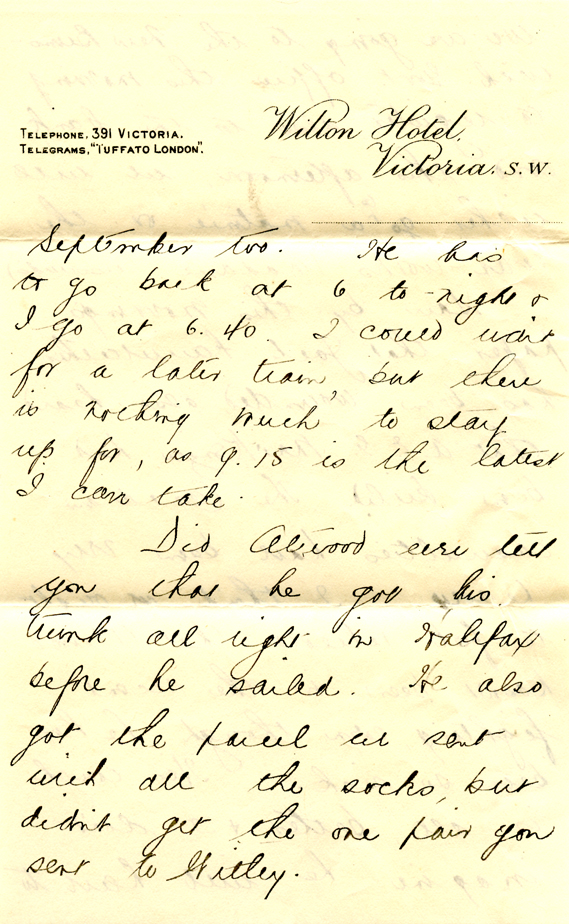 TELEPHONE, 391 VICTORIA.
TELEGRAMS, "TUFFATO LONDON".
Wilton Hotel,
Victoria. S.W.
September too. He has
to go back at 6 to-night &
I go at 6.40. I could wait
for a later train, but there
is nothing much to stay
up for, as 9.15 is the latest
I can take.
Did Atwood ever tell
you that he got his
trunk all right in Halifax
before he sailed. He also
got the parcel we sent
with all the socks, but
didn't get the one pair you
sent to Witley.